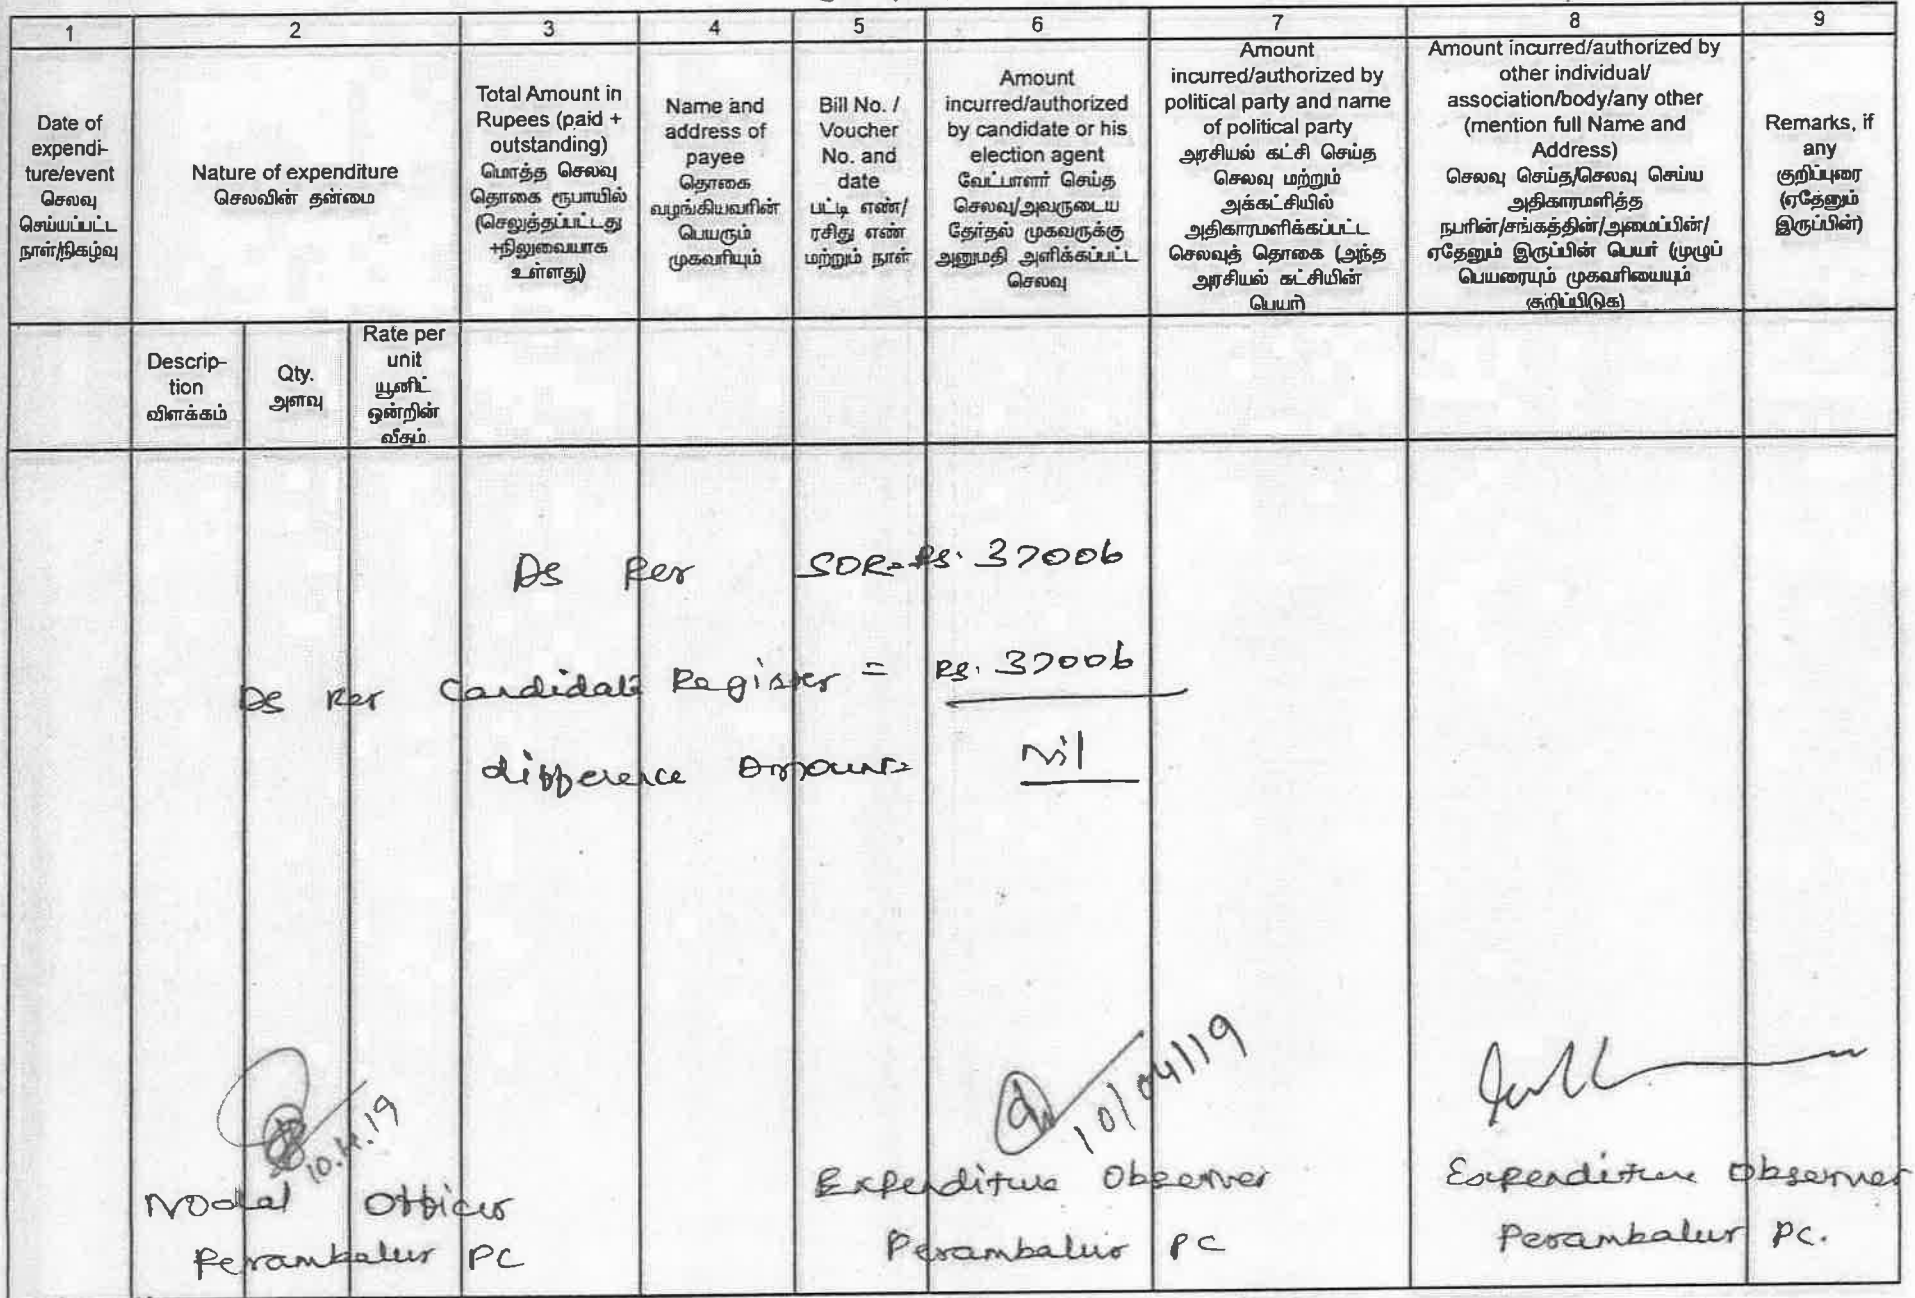 1 2 3 4 5 6 7 8 9
Date of
expendi-
ture/event
செலவு
செய்யப்பட்ட
நாள்/நிகழ்வு
Nature of expenditure
செலவின் தன்மை
Total Amount in
Rupees (paid +
outstanding)
மொத்த செலவு
தொகை ரூபாயில்
(செலுத்தப்பட்டது
+நிலுவையாக
உள்ளது)
Name and
address of
payee
தொகை
வழங்கியவரின்
பெயரும்
முகவரியும்
Bill No. /
Voucher
No. and
date
பட்டி எண்/
ரசிது எண்
மற்றும் நாள்
Amount
incurred/authorized
by candidate or his
election agent
வேட்பாளர் செய்த
செலவு/அவருடைய
தேர்தல் முகவருக்கு
அனுமதி அளிக்கப்பட்ட
செலவு
Amount
incurred/authorized by
political party and name
of political party
அரசியல் கட்சி செய்த
செலவு மற்றும்
அக்கட்சியில்
அதிகாரமளிக்கப்பட்ட
செலவுத் தொகை (அந்த
அரசியல் கட்சியின்
பெயர்)
Amount incurred/authorized by
other individual/
association/body/any other
(mention full Name and
Address)
செலவு செய்த/செலவு செய்ய
அதிகாரமளித்த
நபரின்/சங்கத்தின்/அமைப்பின்/
ஏதேனும் இருப்பின் பெயர் (முழுப்
பெயரையும் முகவரியையும்
குறிப்பிடுக)
Remarks, if
any
குறிப்புரை
(ஏதேனும்
இருப்பின்)
Descrip-
tion
விளக்கம்
Qty.
அளவு
Rate per
unit
யூனிட்
ஒன்றின்
வீதம்
As Per SOR=Rs. 37006
As Per Candidate Register = Rs. 37006
difference Amount= Nil
10.4.19
10/04/19
Nodal Officer
Perambalur PC
Expenditure Observer
Perambalur PC
Expenditure Observer
Perambalur PC.